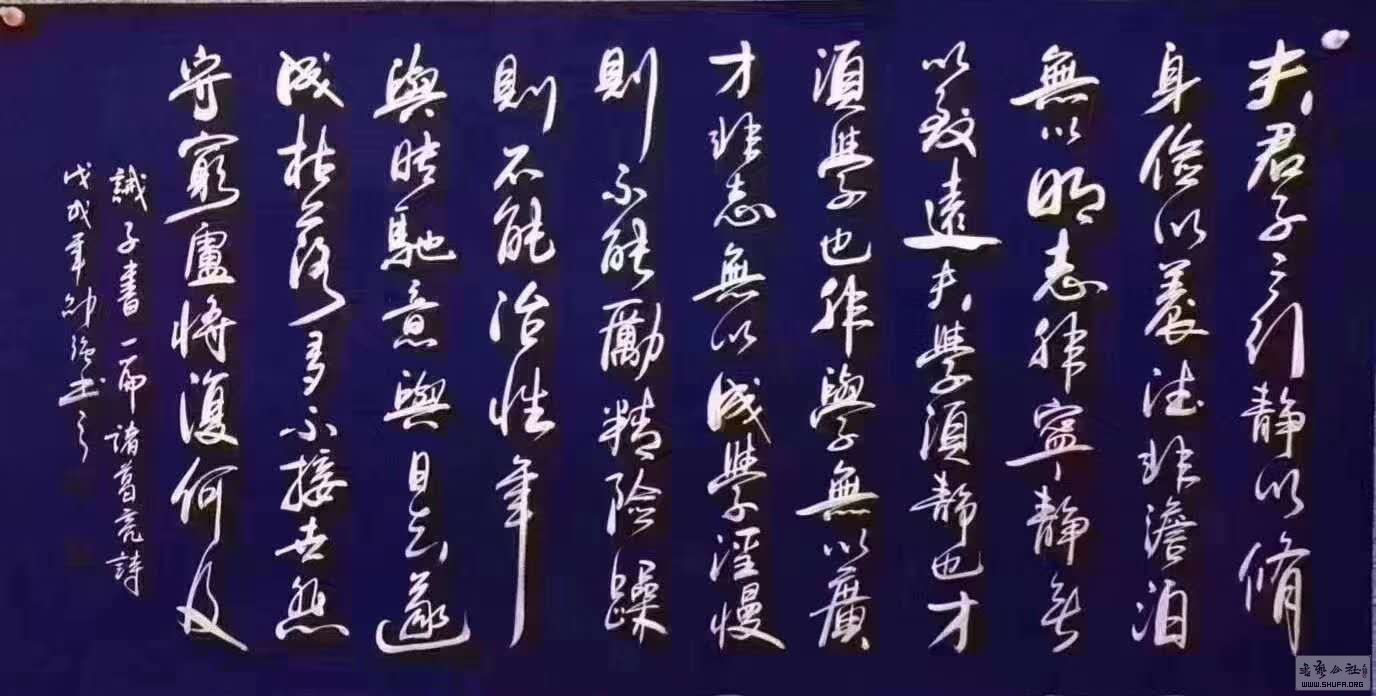 夫君子之行静以脩
身俭以養德非澹泊
無以明志非寧静无
以致遠夫學須静也才
須學也非學無以廣
才非志無以成學淫慢
則不能勵精险躁
則不能治性年
與時馳意與日去遂
成枯落多不接世悲
守窮盧將復何及
誡子書一篇 諸葛亮詩
戊戌年書之
WWW.SHUFA.ORG